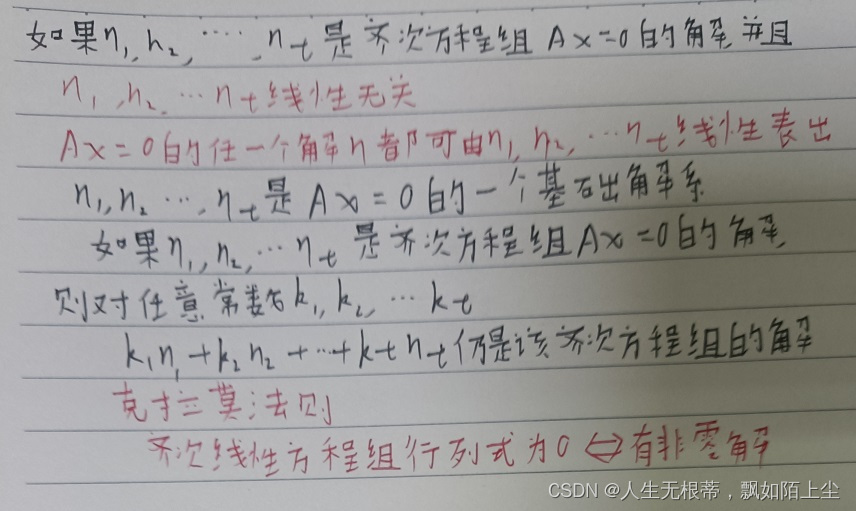 如果n₁,n₂,……,n_t是齐次方程组 Ax=0的解 并且
n₁,n₂,…n_t线性无关
Ax=0的任一个解n都可由n₁,n₂,…n_t线性表出
n₁,n₂…,n_t是Ax=0的一个基础解系
如果n₁,n₂,…n_t是齐次方程组Ax=0的解,
则对任意常数k₁,k₂,…k_t
k₁n₁+k₂n₂+…+k_tn_t仍是该齐次方程组的解
克拉莫法则
齐次线性方程组行列式为0⇔有非零解
CSDN @人生无根蒂，飘如陌上尘